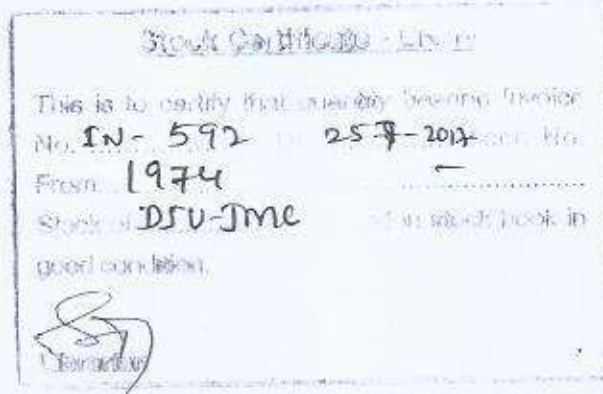 Stock Certificate -
This is to certify that quantity bearing Invoice
No. IN - 592 25 2017 No.
From 1974
Stock of DSU-JMC in stock book in
good condition.